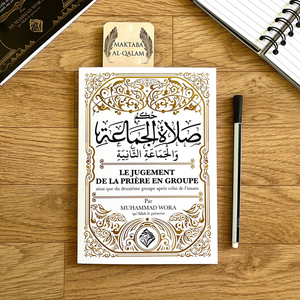 MAKTABA
AL-QALAM
حكم
صلاة الجماعة
والجماعة الثانية
LE JUGEMENT
DE LA PRIÈRE EN GROUPE
ainsi que du deuxième groupe après celui de l'imam
Par
MUHAMMAD WORA
qu'Allah le préserve